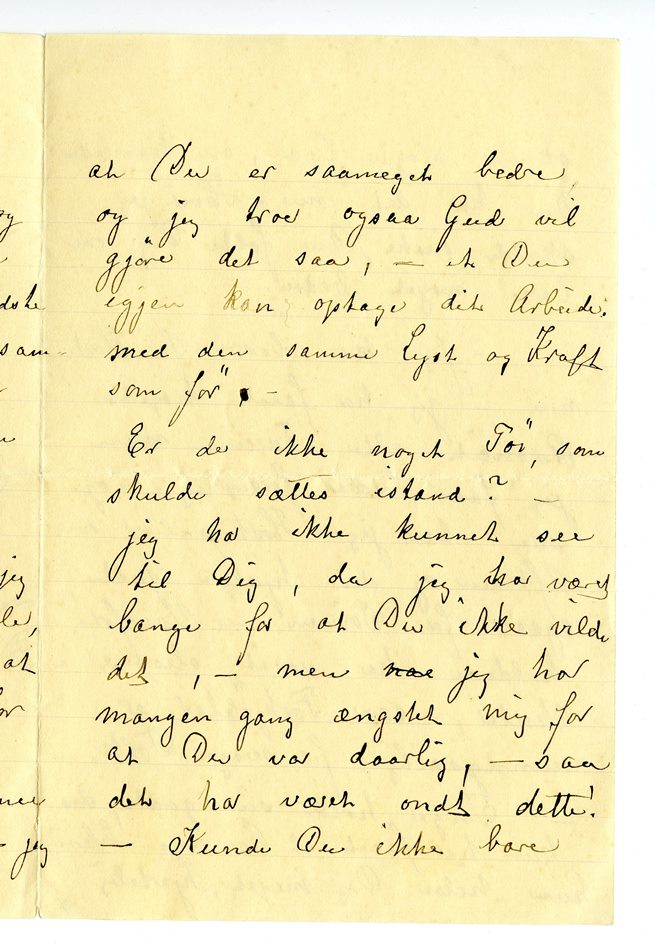 at Du er saameget bedre,
og jeg troe ogsaa Gud vil
gjöre det saa, – at Du
igjen kan optage dit Arbeide.
med den samme Lyst og Kraft
som för, –
Er de ikke noget Töi, som
skulde sættes istand? –
jeg har ikke kunnet see
til Dig, da jeg har været
bange for at Du ikke vilde
det, – men jeg har
mangen gang ængstet mig for
at Du var daarlig, – saa
det har været ondt dette!
– Kunde Du ikke bare
og
dste
sam-
jeg
at
– jeg